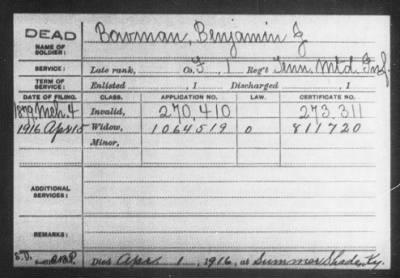 DEAD
NAME OF SOLDIER: Bowman, Benjamin J.
SERVICE: Late rank, Co. F, 1 Reg't Tenn Mtd. Inf.
TERM OF SERVICE: Enlisted , 1 Discharged , 1
DATE OF FILING. CLASS. APPLICATION NO. LAW. CERTIFICATE NO.
1879, Mch. 4 Invalid, 270,410 273,311
1916 Apr 15 Widow, 1064519 0 811720
Minor,
ADDITIONAL SERVICES:
REMARKS:
Died Apr. 1, 1916, at Summer Shade, Ky.